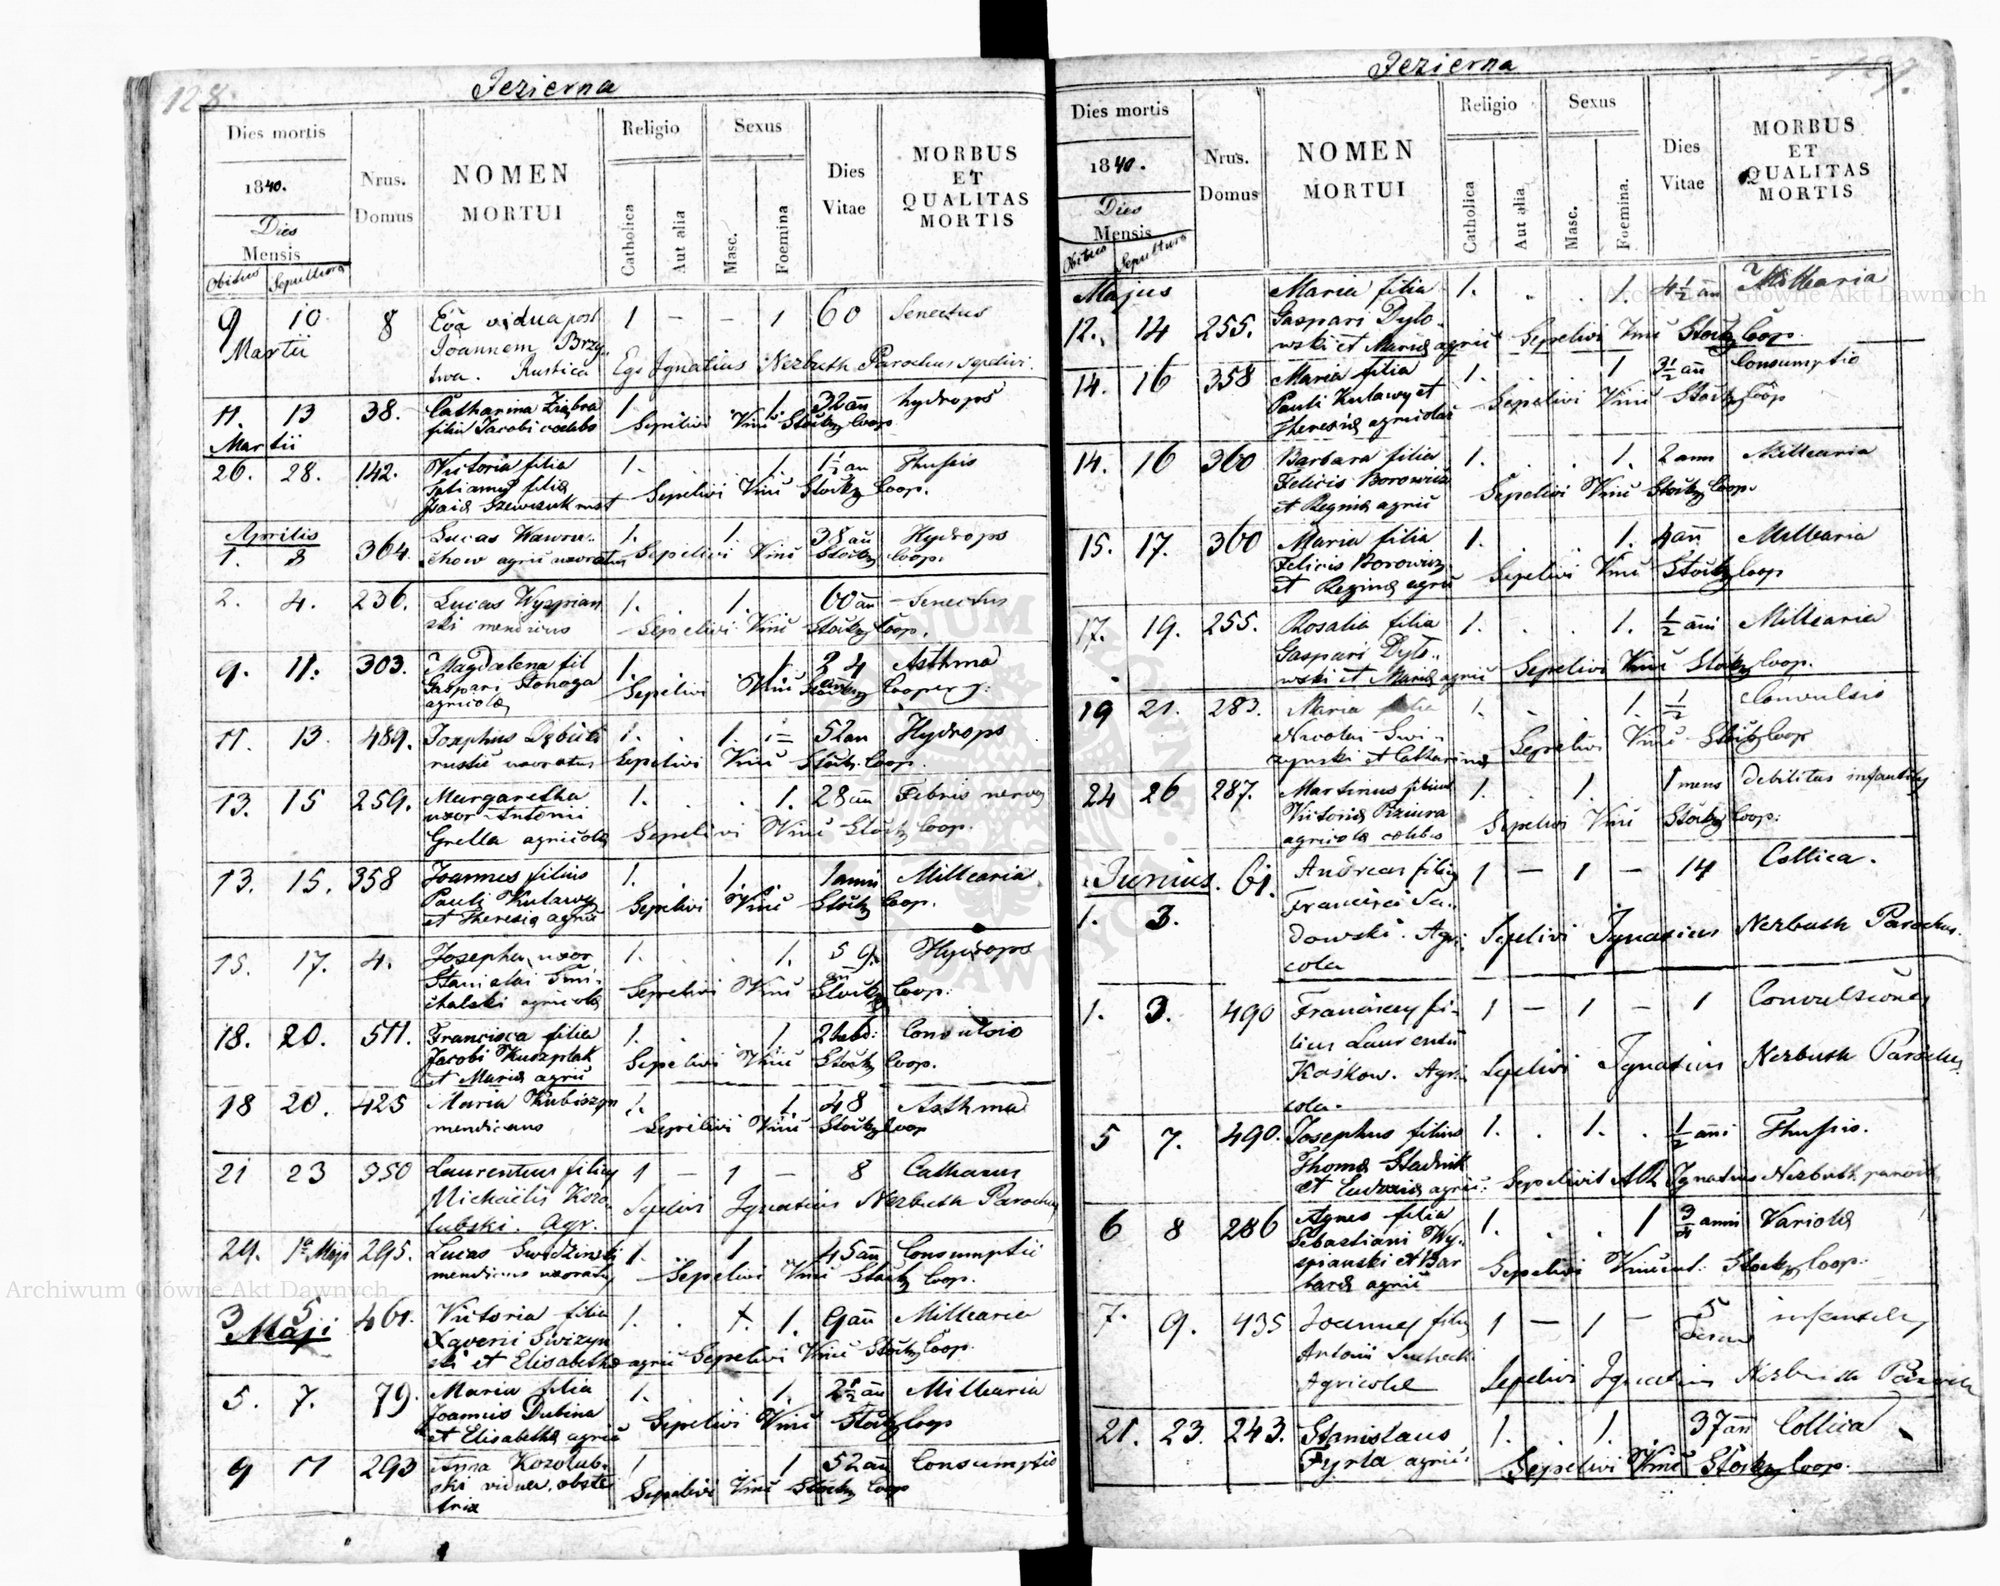 128.
Jezierna
Dies mortis
1840.
Dies
Mensis
Obitus Sepulturae
Nrus.
Domus
NOMEN
MORTUI
Religio
Catholica
Aut alia
Sexus
Masc.
Foemina
Dies
Vitae
MORBUS
ET
QUALITAS
MORTIS
9 10 8 Eva vidua post 1 — — 1 60 Senectus
Martii Joannem Brzy
twa. Rustica Ego Ignatius Nezbuth Parochus sepelivi.
11. 13 38. Catharina Ziąbra 1. 1. 32 an hydrops
filia Jacobi coelebs Sepelivi Vinc Stocky Coop.
Martii
26. 28. 142. Victoria filia 1. . . 1. 1½ an Thussis
Sepelivi Vinc Stocky Coop.
Aprilis
1. 3 364. Lucas Wawrn 1. 1. 38 an Hydrops
chow agric uxoratus Sepelivi Vinc Stocky Coop.
2. 4. 236. Lucas Wyspian 1. . 1. 60 an Senectus
ski mendicus Sepelivi Vinc Stocky Coop.
9. 11. 303. Magdalena fil 1. 1. 34 Asthma
Gaspari Stonoga Sepelivi Vinc Stocky Cooper
agricola
11. 13. 489. Josephus 1. . 1. 52 an Hydrops
rustic uxoratus Sepelivi Vinc Stocky Coop.
13. 15 259. Margaretha 1. . . 1. 28 an Febris nervos
uxor Antonii
Grella agricola Sepelivi Vinc Stocky Coop.
13. 15. 358 Joannes filius 1. . 1. . 1 anni Milliaria
Pauli Kulawy Sepelivi Vinc Stocky Coop.
et Theresia agric
15. 17. 4. Josepha uxor 1. . . 1. 59. Hydrops
Stanislai Smi an
chalski agricola Sepelivi Vinc Stocky Coop.
18. 20. 511. Francisca filia 1. . 1. Convulsio
Jacobi Kuszplak Sepelivi Vinc Stocky Coop.
et Maria agric
18 20. 425 Maria Kubiszyn 1. 1. 48 Asthma
mendicans Sepelivi Vinc Stocky Coop
21 23 350 Laurentius filius 1 — 1 — 8 Catharus
Michaelis Kozo
lubski. Agr. Sepelivi Ignatius Nezbuth Parochus
29. 1a Maji 295. Lucas Swidzinski 1. . 1 45 an Consumptio
mendicus uxoratus Sepelivi Vinc Stocky Coop.
3 5 461. Victoria filia 1. . 1. 9 an Milliaria
Maji Xaverii Swizyn
ski et Elisabetha agric Sepelivi Vinc Stocky Coop.
5. 7. 79. Maria filia 1. . . 1. 2½ an Milliaria
Joannis Dubina
et Elisabetha agric Sepelivi Vinc Stocky Coop
9 11 293 Anna Kozolub 1 . 1 52 an Consumptio
ski vidua, obste
trix Sepelivi Vinc Stocky Coop
Jezierna
Dies mortis
1840.
Dies
Mensis
Obitus Sepulturae
Nrus.
Domus
NOMEN
MORTUI
Religio
Catholica
Aut alia
Sexus
Masc.
Foemina.
Dies
Vitae
MORBUS
ET
QUALITAS
MORTIS
Majus Maria filia 1. . . 1. 4½ an Milliaria
12. 14 255. Gaspari Dylo
wski et Maria agric Sepelivi Vinc Stocky Coop.
14. 16 358 Maria filia 1. . 1 3½ an Consumptio
Pauli Kulawy et
Theresia agricolae Sepelivi Vinc Stocky Coop
14. 16 360 Barbara filia 1. . . 1. 2 ann Milliaria
Felicis Borowicz
et Regina agric Sepelivi Vinc Stocky Coop.
15. 17. 360 Maria filia 1. . . 1. 4 an Milliaria
Felicis Borowicz
et Regina agric Sepelivi Vinc Stocky Coop
17. 19. 255. Rosalia filia 1. . . 1. ½ ani Milliaria
Gaspari Dyto
wski et Maria agric Sepelivi Vinc Stocky Coop.
19 21. 283. Maria filia 1. . . 1. ½ Convulsio
Nicolai Swi
zynski et Catharina Sepelivi Vinc Stocky Coop
24 26 287. Martinus filius 1. . 1. 1 mens Debilitas infantilis
Victoria Piziura
agricola coelebs Sepelivi Vinc Stocky Coop.
Junius. 61. Andreas filius 1 — 1 — 14 Collica.
1. 3. Francisci Sa
dowski. Agri Sepelivi Ignatius Nezbuth Parochus.
cola
1. 3. 490 Franciscus fi 1 — 1 — 1 Convulsiones
lius Laurentii
Koskow. Agri Sepelivi Ignatius Nezbuth Parochus.
cola.
5 7. 490. Josephus filius 1. . 1. . ½ ani Thussis.
Thoma Stadnik
et Ludovica agric. Sepelivit Ignatius Nezbuth paroch
6 8 286 Agnes filia 1. . . 1 ¾ anni Variola
Sebastiani Wy
spianski et Bar
bara agric Sepelivi Vincent. Stocky Coop.
7. 9. 435 Joannes filius 1 — 1 — 5 infantiles
Antonii Suchecki
Agricolae Sepelivi Ignatius Nezbuth Paroch
21. 23. 243. Stanislaus 1. . 1. . 37 an Collica
Fyrla agric. Sepelivi Vinc Stocky Coop.
Archiwum Główne Akt Dawnych
Archiwum Główne Akt Dawnych